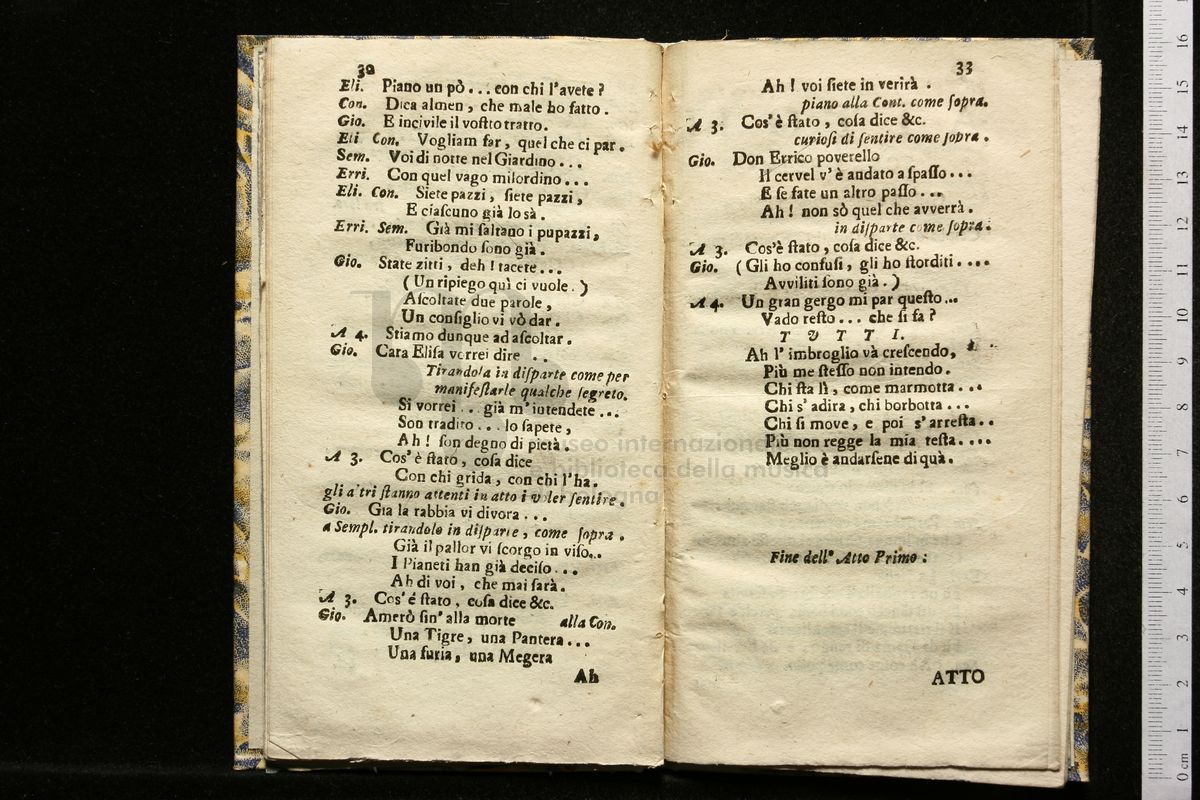 30
Eli. Piano un pò... con chi l'avete?
Con. Dica almen, che male ho fatto.
Gio. E incivile il vostro tratto.
Eli Con. Vogliam far, quel che ci par.
Sem. Voi di notte nel Giardino...
Erri. Con quel vago milordino...
Eli. Con. Siete pazzi, siete pazzi,
E ciascuno già lo sà.
Erri. Sem. Già mi saltano i pupazzi,
Furibondo sono già.
Gio. State zitti, deh! tacete...
(Un ripiego quì ci vuole.)
Ascoltate due parole,
Un consiglio vi vò dar.
A 4. Stiamo dunque ad ascoltar.
Gio. Cara Elisa vorrei dire ..
Tirandola in disparte come per
manifestarle qualche segreto.
Si vorrei .. già m'intendete...
Son tradito... lo sapete,
Ah! son degno di pietà.
A 3. Cos'è stato, cosa dice
Con chi grida, con chi l'ha.
gli a'tri stanno attenti in atto i voler sentire.
Gio. Gia la rabbia vi divora...
a Sempl. tirandolo in disparte, come sopra.
Già il pallor vi scorgo in viso...
I Pianeti han già deciso...
Ah di voi, che mai sarà.
A 3. Cos'é stato, cosa dice &c.
Gio. Amerò sin'alla morte alla Con.
Una Tigre, una Pantera...
Una furia, una Megera
Ah
33
Ah! voi siete in verirà.
piano alla Cont. come sopra.
A 3. Cos'è stato, cosa dice &c.
curiosi di sentire come sopra.
Gio. Don Errico poverello
Il cervel v'è andato a spasso...
E se fate un altro passo...
Ah! non sò quel che avverrà.
in disparte come sopra.
A 3. Cos'è stato, cosa dice &c.
Gio. (Gli ho confusi, gli ho storditi....
Avviliti sono già.)
A 4. Un gran gergo mi par questo...
Vado resto... che si fa?
TUTTI.
Ah l'imbroglio và crescendo,
Più me stesso non intendo.
Chi sta lì, come marmotta...
Chi s'adira, chi borbotta...
Chi si move, e poi s'arresta..
Più non regge la mia testa....
Meglio è andarsene di quà.
Fine dell'Atto Primo:
ATTO
museo internazionale
e biblioteca della musica
0 cm 1 2 3 4 5 6 7 8 9 10 11 12 13 14 15 16